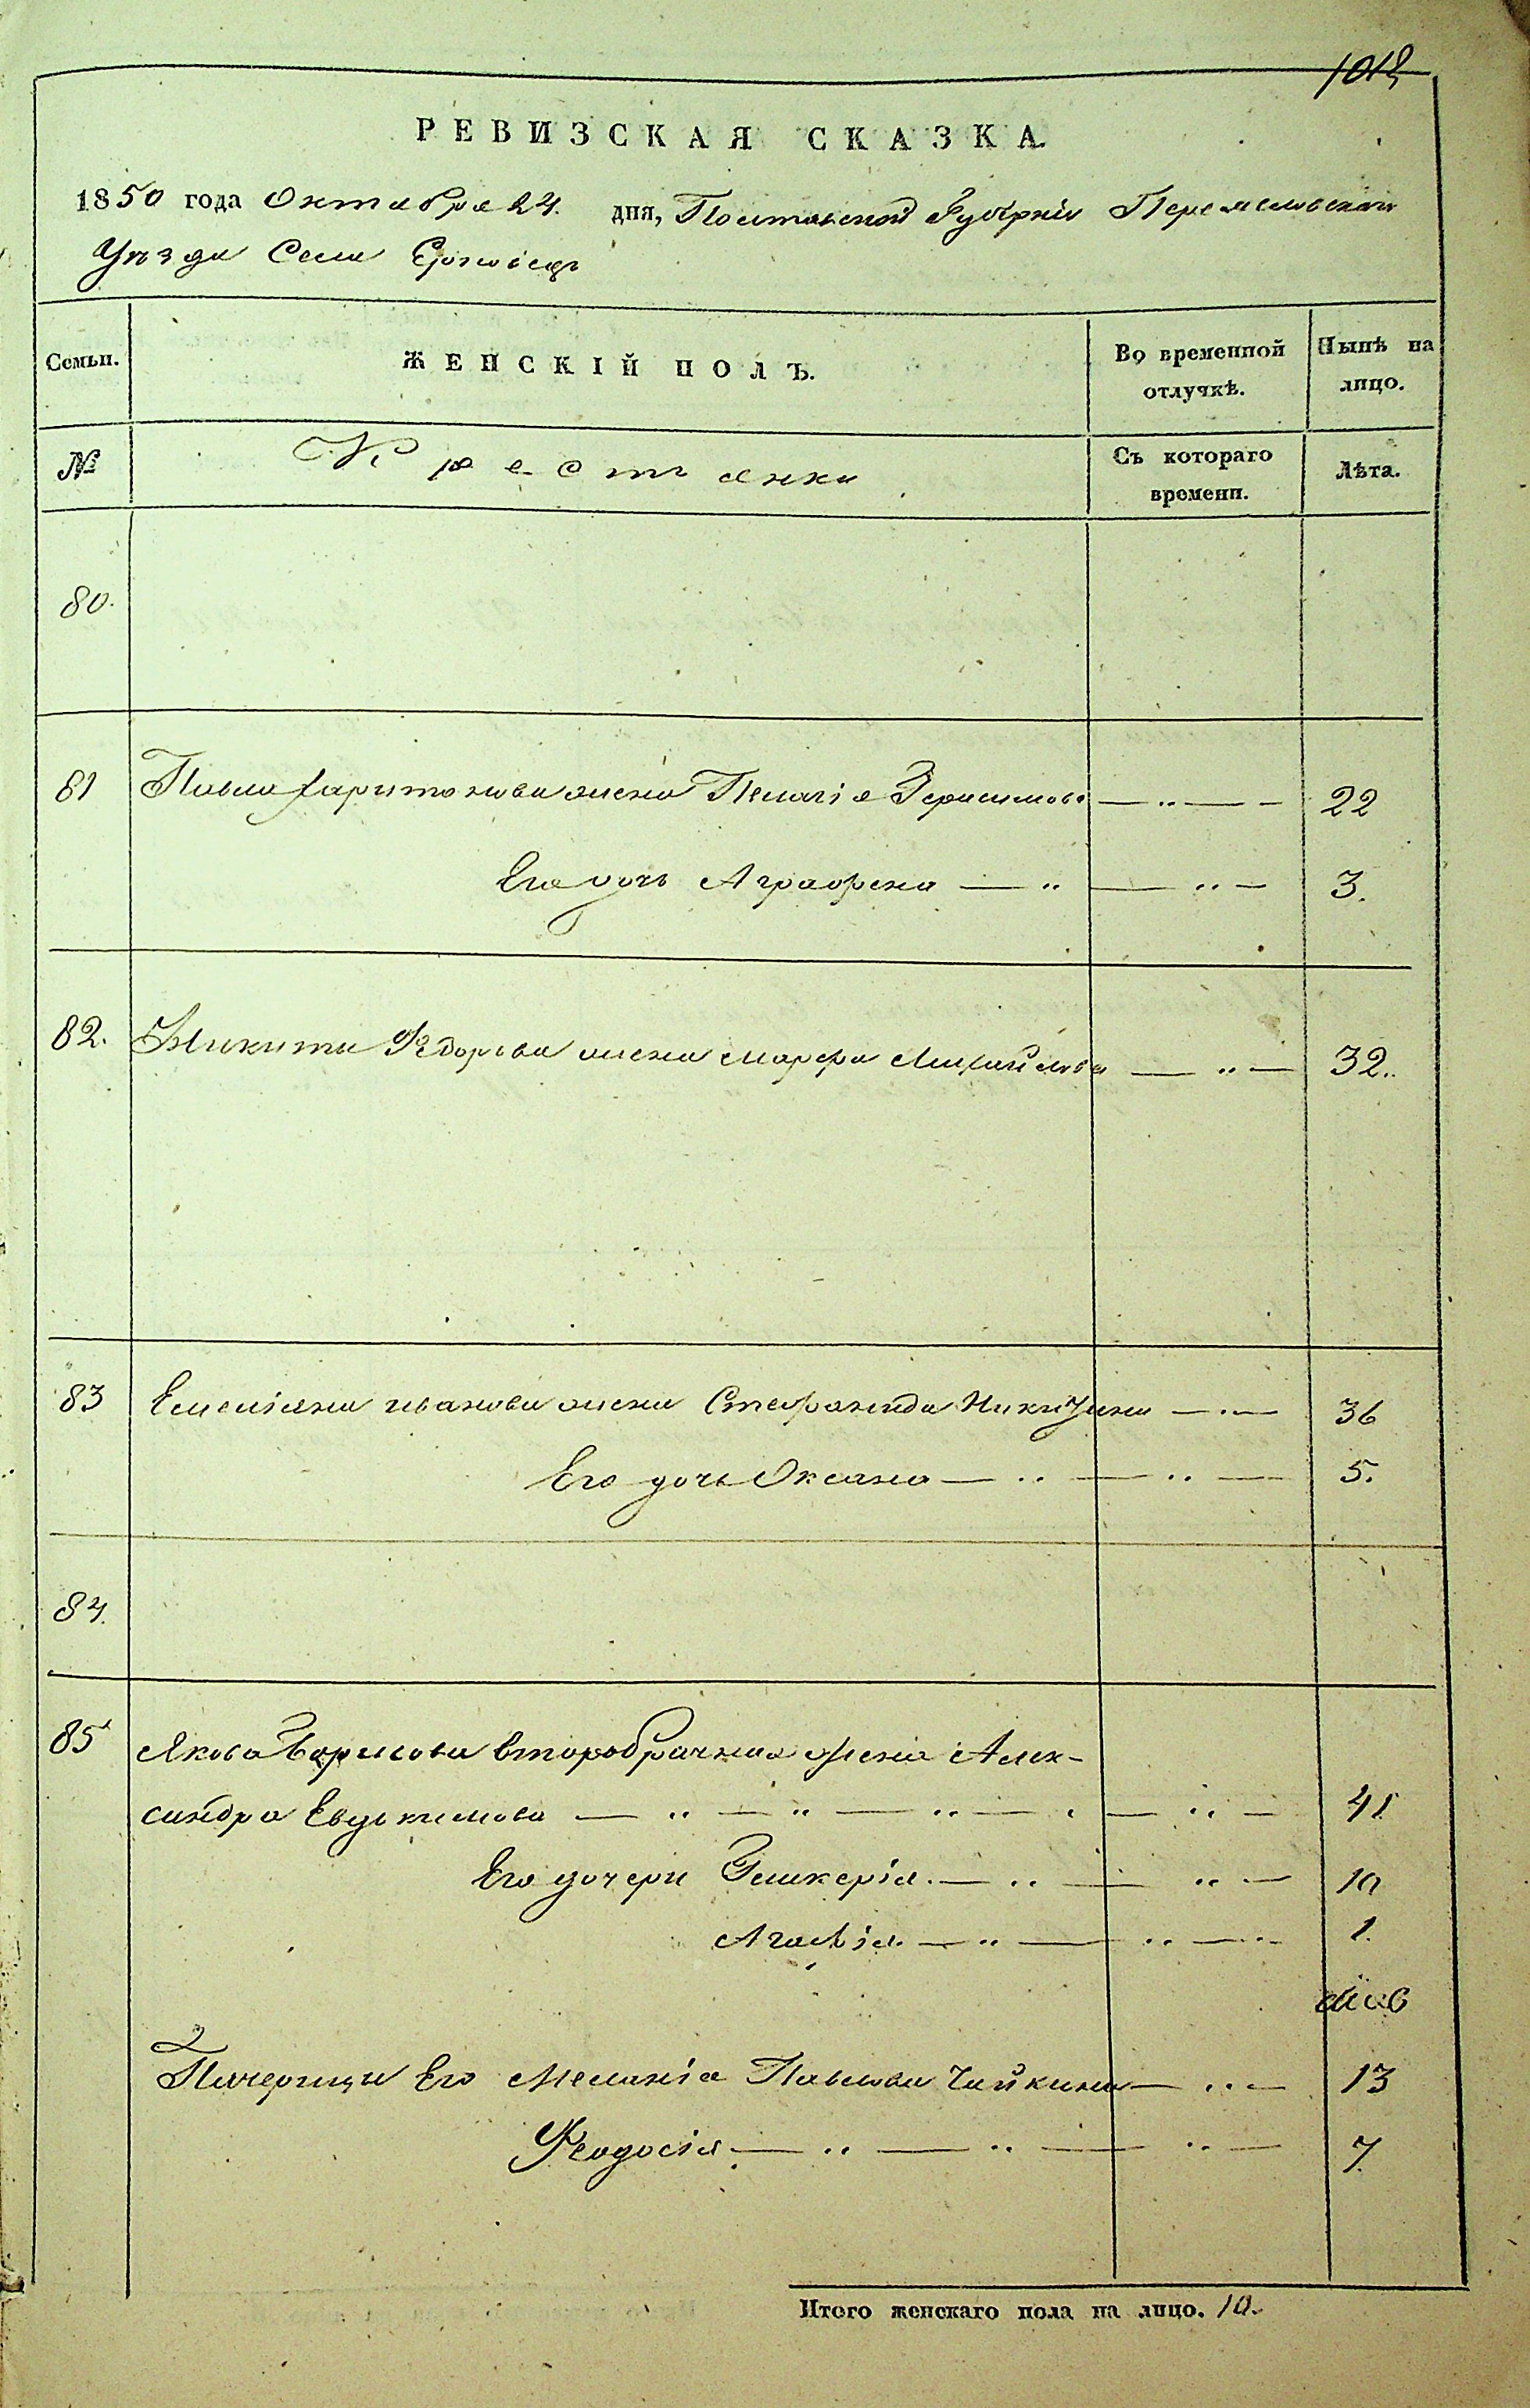 1012
РЕВИЗСКАЯ СКАЗКА.
1850 года Октября 24. дня, Полтавской Губерніи Переяславскаго
Уѣзда Села Ерковецъ
Семьи. ЖЕНСКІЙ ПОЛЪ. Во временной отлучкѣ. Нынѣ на лицо.
№ Крестьянки Съ котораго времени. Лѣта.
80.
81 Павла Харитонова жена Пелагія Герасимова — „ — — 22
Его дочь Аграфена — „ — „ — 3.
82. Никиты Федорова жена Марфа Михайлова — „ — 32.
83 Емеліяна Иванова жена Стефанида Никитина — „ — 36
Его дочь Оксана — „ — „ — 5.
84.
85 Якова Борисова второбрачная жена Алек-
сандра Евдокимова — „ — „ — „ — „ — „ — 41
Его дочери Гликерія. — „ — „ — 10
Агафія. — „ — „ — 1.
мѣс
2
Пачерицы Его Меланія Павлова Чайкина — „ — 13
Феодосія — „ — „ — „ — 7.
Итого женскаго пола на лицо. 10.